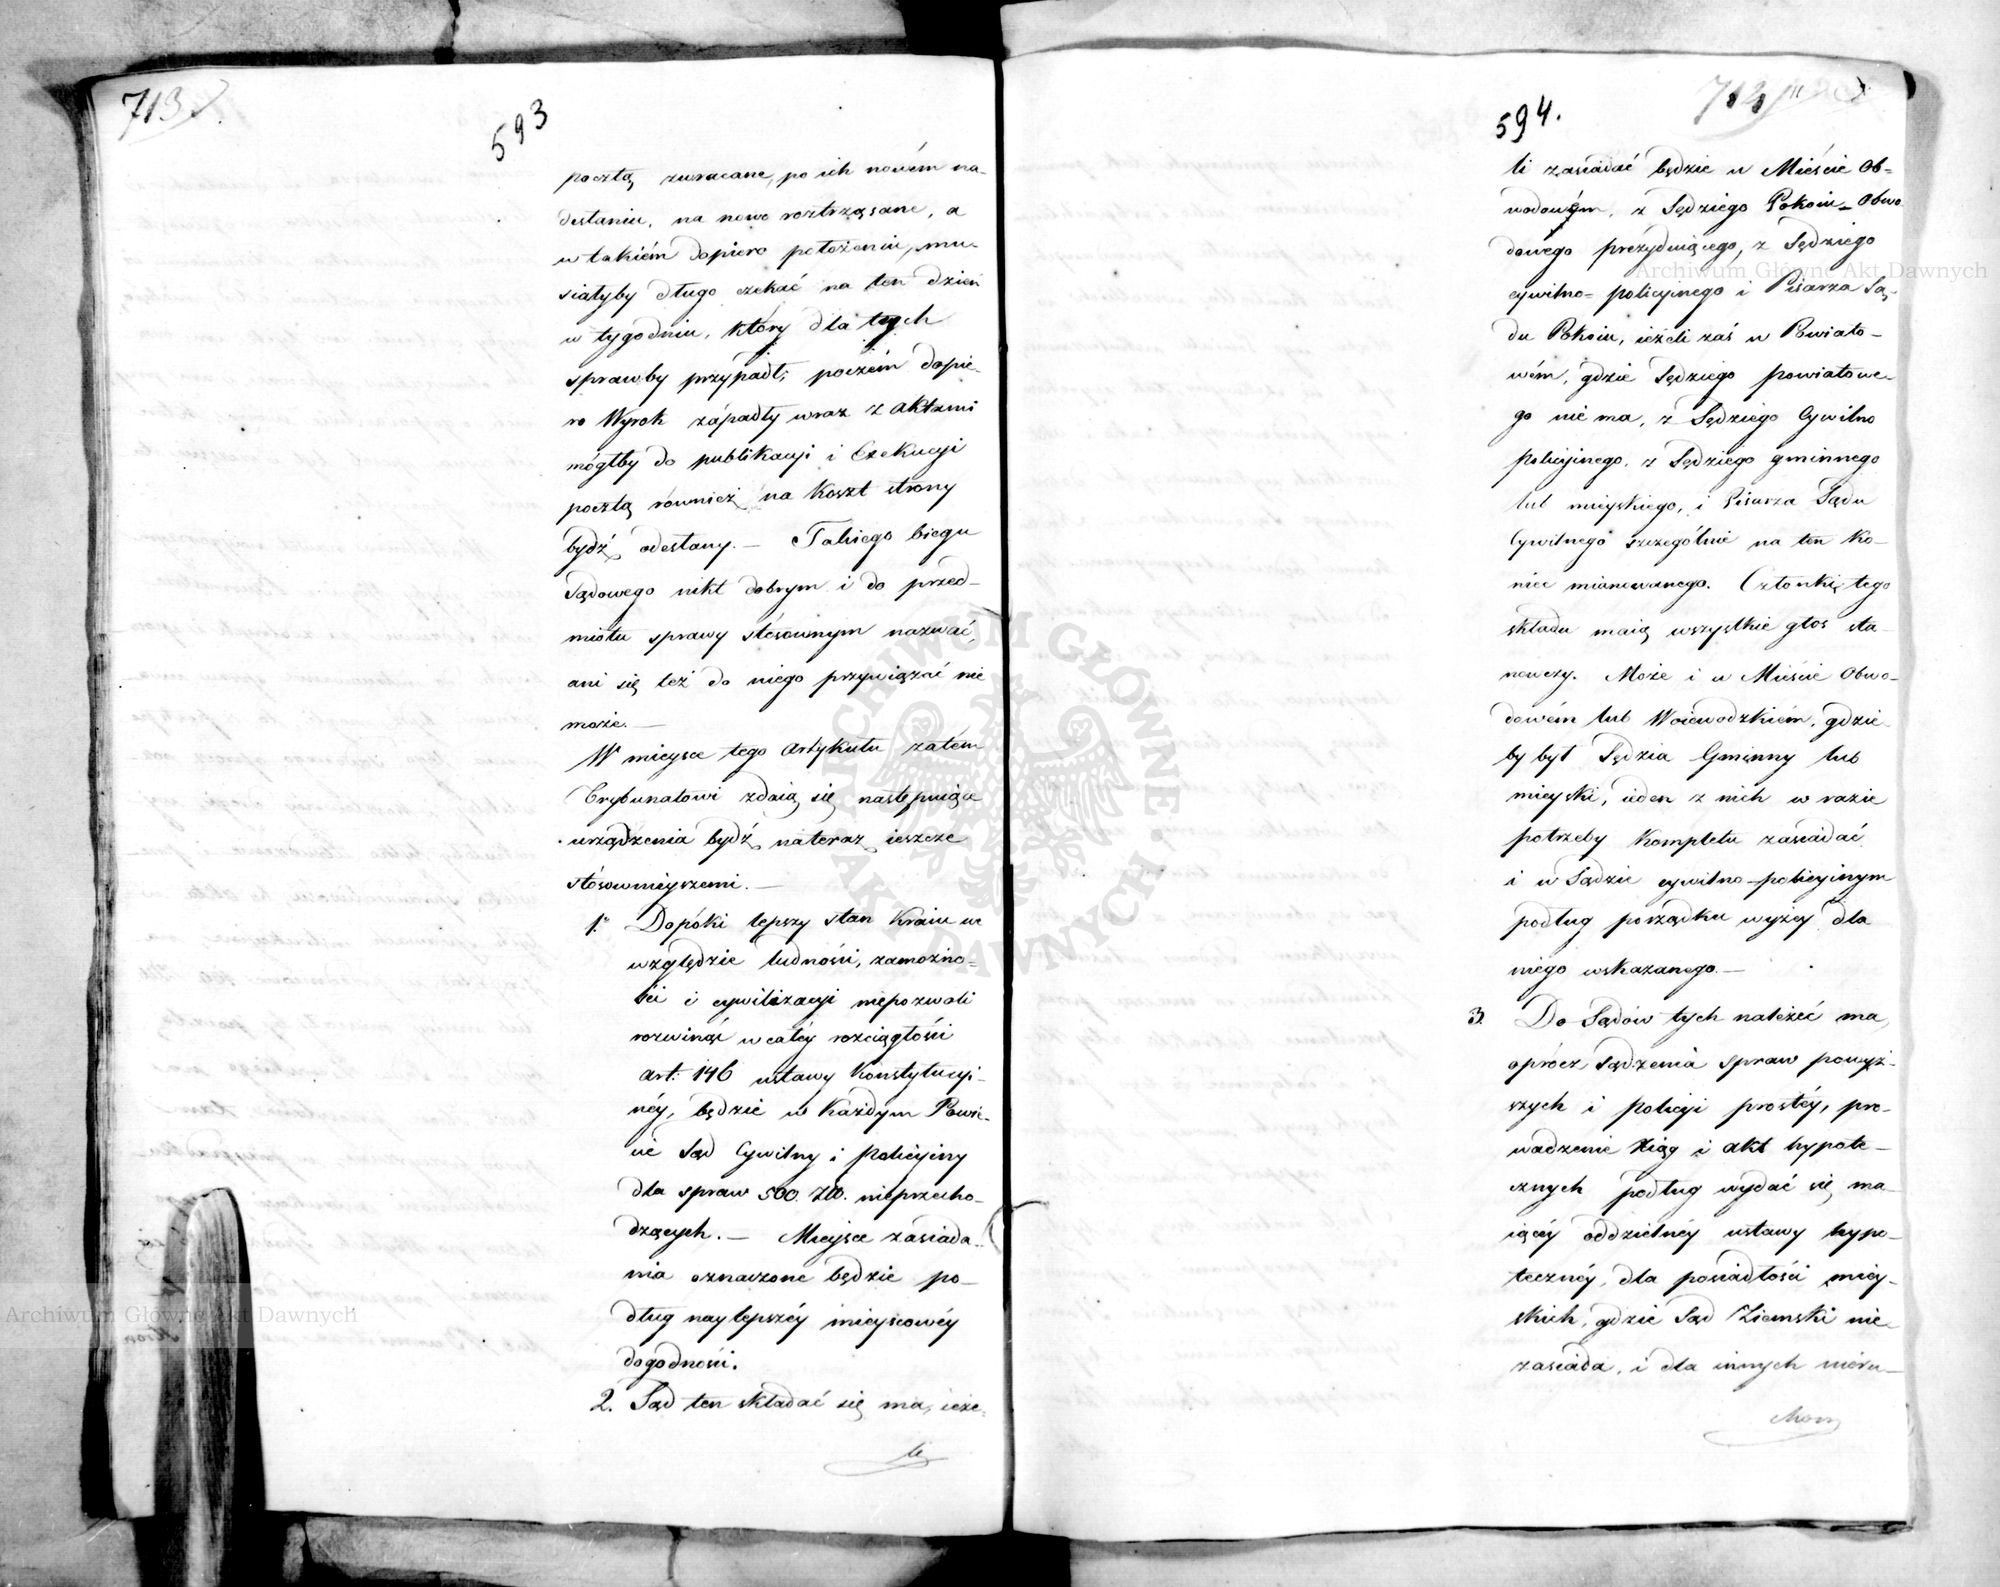 713
593
pocztą zwracane, po ich nowém na-
desłaniu, na nowo roztrząsane, a
w takiém dopiero położeniu, mu-
siałyby długo czekać na ten dzień
w tygodniu, który dla tych
sprawby przypadł; poczém dopie-
ro Wyrok západły wraz z aktami
mógłby do publikacyi i Exekucyi
pocztą równieź na koszt strony
bydź odesłany. — Takiego biegu
Sądowego nikt dobrym i do przed-
miotu sprawy stósownym nazwać,
ani się też do niego przywiązać nie
może. —
W mieysce tego Artykułu zatém
Trybunałowi zdaią się następuiące
urządzenia bydź nateraz ieszcze
stósownieyszemi. —
1. Dopóki lepszy stan Kraiu we
względzie ludności, zamożno-
ści i cywilizacyi niepozwoli
rozwinąć w całéy rozciągłości
art: 146 ustawy Konstytucyi-
néy, będzie w każdym Powie-
cie Sąd Cywilny i Policyiny
dla spraw 500. Złł. nieprzecho-
dzących. — Mieysce zasiada-
nia oznaczone będzie po-
dług naylepszéy mieyscowéy
dogodności.
2. Sąd ten składać się ma, ieże-
li
714
594.
li zasiadać będzie w Mieście Ob-
wodowym, z Sędziego Pokoiu Obwo-
dowego prezyduiącego, z Sędziego
cywilno-policyinego i Pisarza Są-
du Pokoiu, ieżeli zaś w Powiato-
wém, gdzie Sędziego powiatowe-
go nie ma, z Sędziego Cywilno
policyinego, z Sędziego gminnego
lub mieyskiego, i Pisarza Sądu
Cywilnego szczególnie na ten ko-
niec mianowanego. Członki tego
składu maią wszystkie głos sta-
nowczy. Może i w Mieście Obwo-
dowém lub Woiewodzkiém, gdzie-
by był Sędzia Gminny lub
mieyski, ieden z nich w razie
potrzeby kompletu zasiadać
i w Sądzie cywilno-policyinym
podług porządku wyżéy dla
niego wskazanego. —
3. Do Sądów tych należéć ma,
oprócz sądzenia spraw powyż-
szych i Policyi prostéy, pro-
wadzenie Xiąg i akt hypote-
cznych podług wydać się ma-
iącéy oddzielnéy ustawy hypo-
tecznéy, dla posiadłości miey-
skich, gdzie Sąd Ziemski nie
zasiada, i dla innych nieru-
chom
Archiwum Główne Akt Dawnych
Archiwum Główne Akt Dawnych
ARCHIWUM GŁÓWNE AKT DAWNYCH